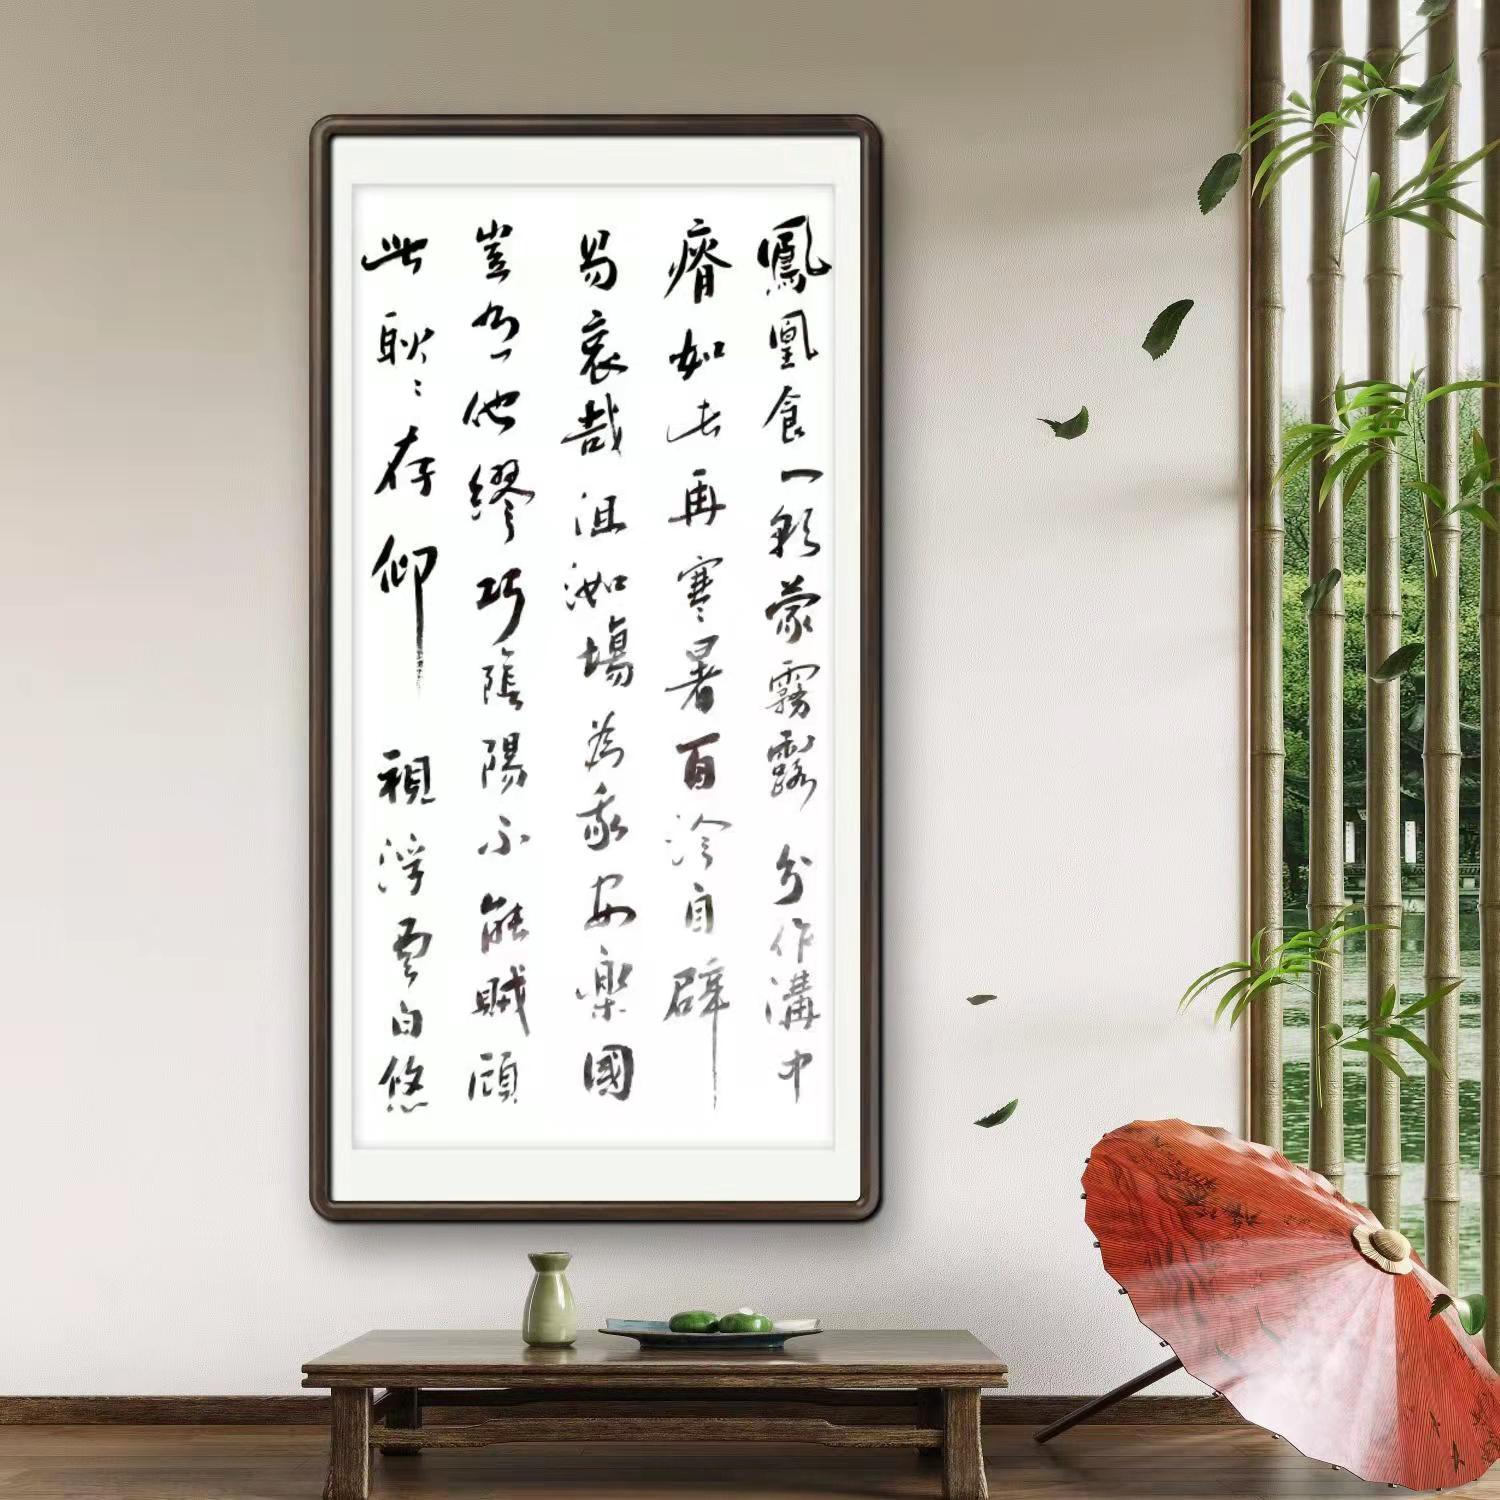 鳳凰食一朝蒙霧露分作溝中
瘠如此再寒暑百沴自辟
易哀哉沮洳場為我安樂國
豈有他繆巧陰陽不能賊顧
此耿〻存仰視浮雲白悠